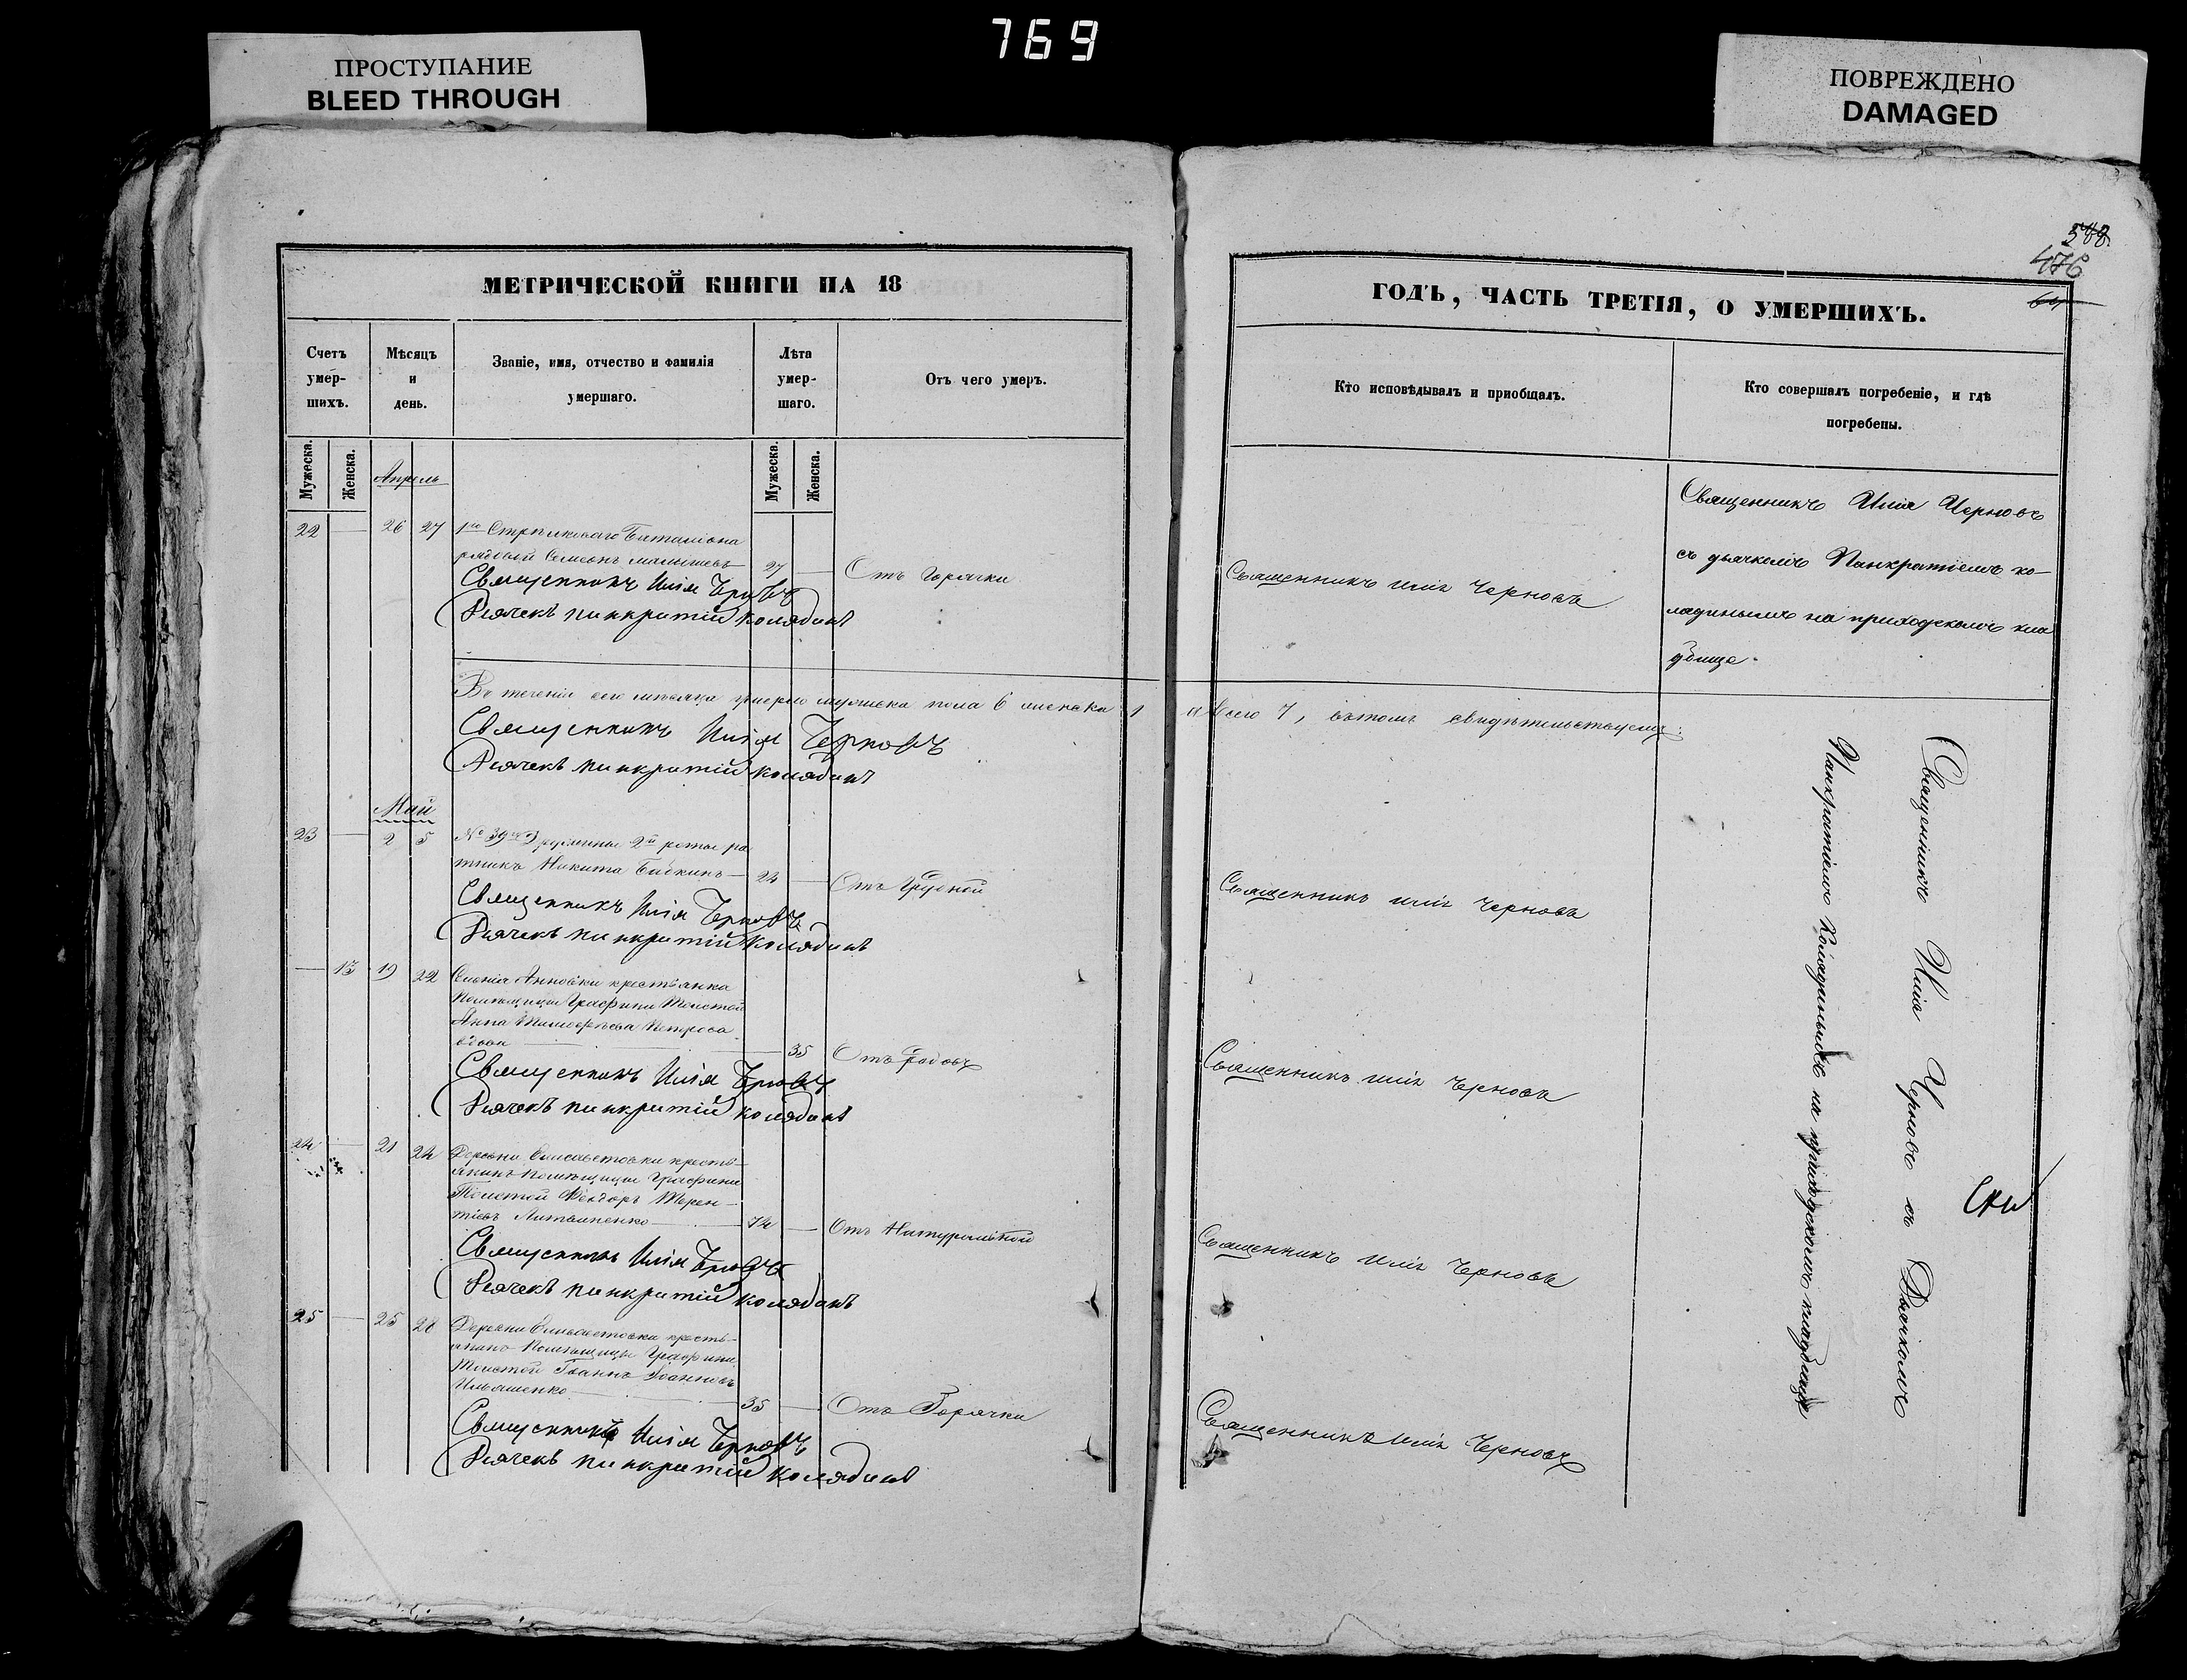 769
ПРОСТУПАНИЕ
BLEED THROUGH
ПОВРЕЖДЕНО
DAMAGED
588
476
МЕТРИЧЕСКОЙ КНИГИ НА 18
ГОДЪ, ЧАСТЬ ТРЕТІЯ, О УМЕРШИХЪ.
Счетъ умер- шихъ.
Мѣсяцъ и день.
Званіе, имя, отчество и фамилія умершаго.
Лѣта умер- шаго.
Отъ чего умеръ.
Кто исповѣдывалъ и приобщалъ.
Кто совершалъ погребеніе, и гдѣ погребены.
Мужеска.
Женска.
Мужеска.
Женска.
Апрель
22 — 26 27 1го Стрелковаго Баталіона
рядовой Семенъ Малышевъ 27 — Отъ Горячки
Священникъ Илія Черновъ
Дьячекъ Панкратій Колядинъ
Священникъ Илія Черновъ
Священникъ Илія Черновъ
съ дьячкомъ Панкратіемъ Ко-
лядинымъ на приходскомъ кла
дбище.
Въ теченіи сего месяца умерло мужеска пола 6 женска 1 а всего 7, въ томъ свидетельствуемъ:
Священникъ Илія Черновъ
Дьячекъ Панкратій Колядинъ
Май
23 — 2 5 № 39й Дружины 2й роты ра
тникъ Никита Бабкинъ — 24 — Отъ Грудной
Священникъ Илія Черновъ
Дьячекъ Панкратій Колядинъ
Священникъ Илія Черновъ
— 13 19 22 Анновки крестьянка
Помещицы Графини Толстой
Анна Тимофеева Петрова
вдова — 35 Отъ Родовъ
Священникъ Илія Черновъ
Дьячекъ Панкратій Колядинъ
Священникъ Илія Черновъ
24 — 21 24 Деревни Елисаветовки кресть-
янинъ Помещицы Графини
Толстой Феодоръ Терен-
тіевъ Литвиненко — 74 — Отъ Натуральной
Священникъ Илія Черновъ
Дьячекъ Панкратій Колядинъ
Священникъ Илія Черновъ
25 — 25 28 Деревни Елисаветовки кресть-
янинъ Помещицы Графини
Толстой Іоаннъ Іоанновъ
Ильяшенко — 35 — Отъ Горячки
Священникъ Илія Черновъ
Дьячекъ Панкратій Колядинъ
Священникъ Илія Черновъ
Священникъ Илія Черновъ съ Дьячкомъ
Панкратіемъ Колядинымъ на приходскомъ кладбище